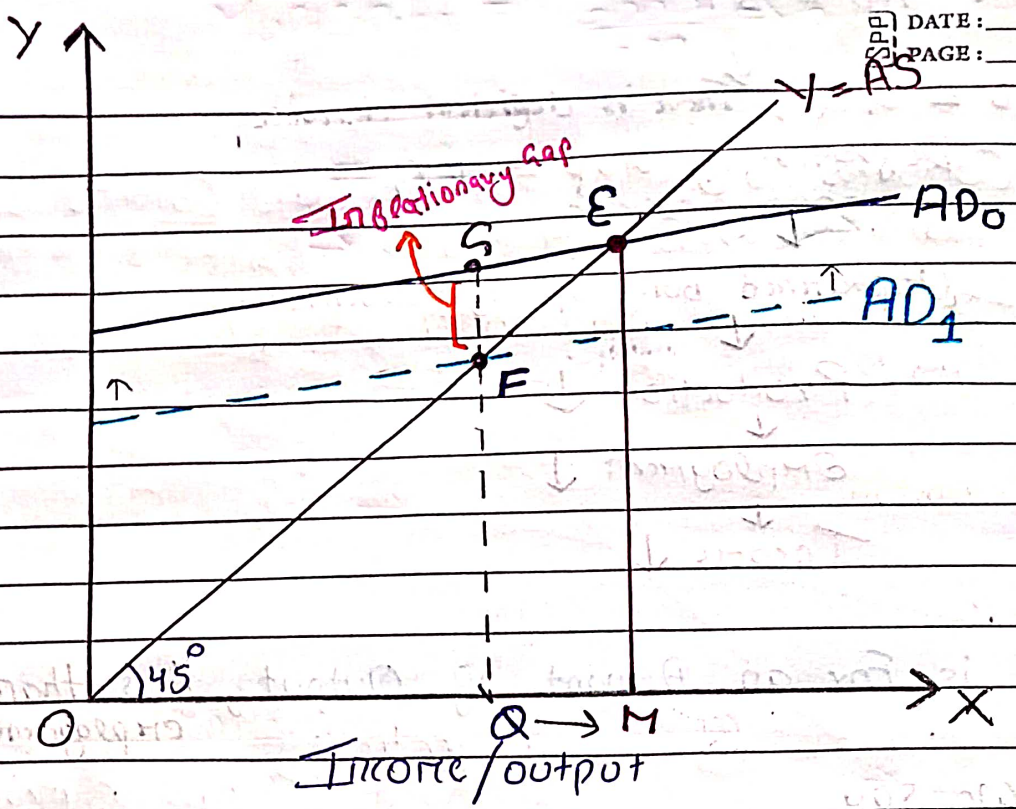 Y
SPP
DATE:
PAGE:
Y = AS
Inflationary Gap
G
E
AD₀
AD₁
F
45°
O
Q → M
X
Income/output